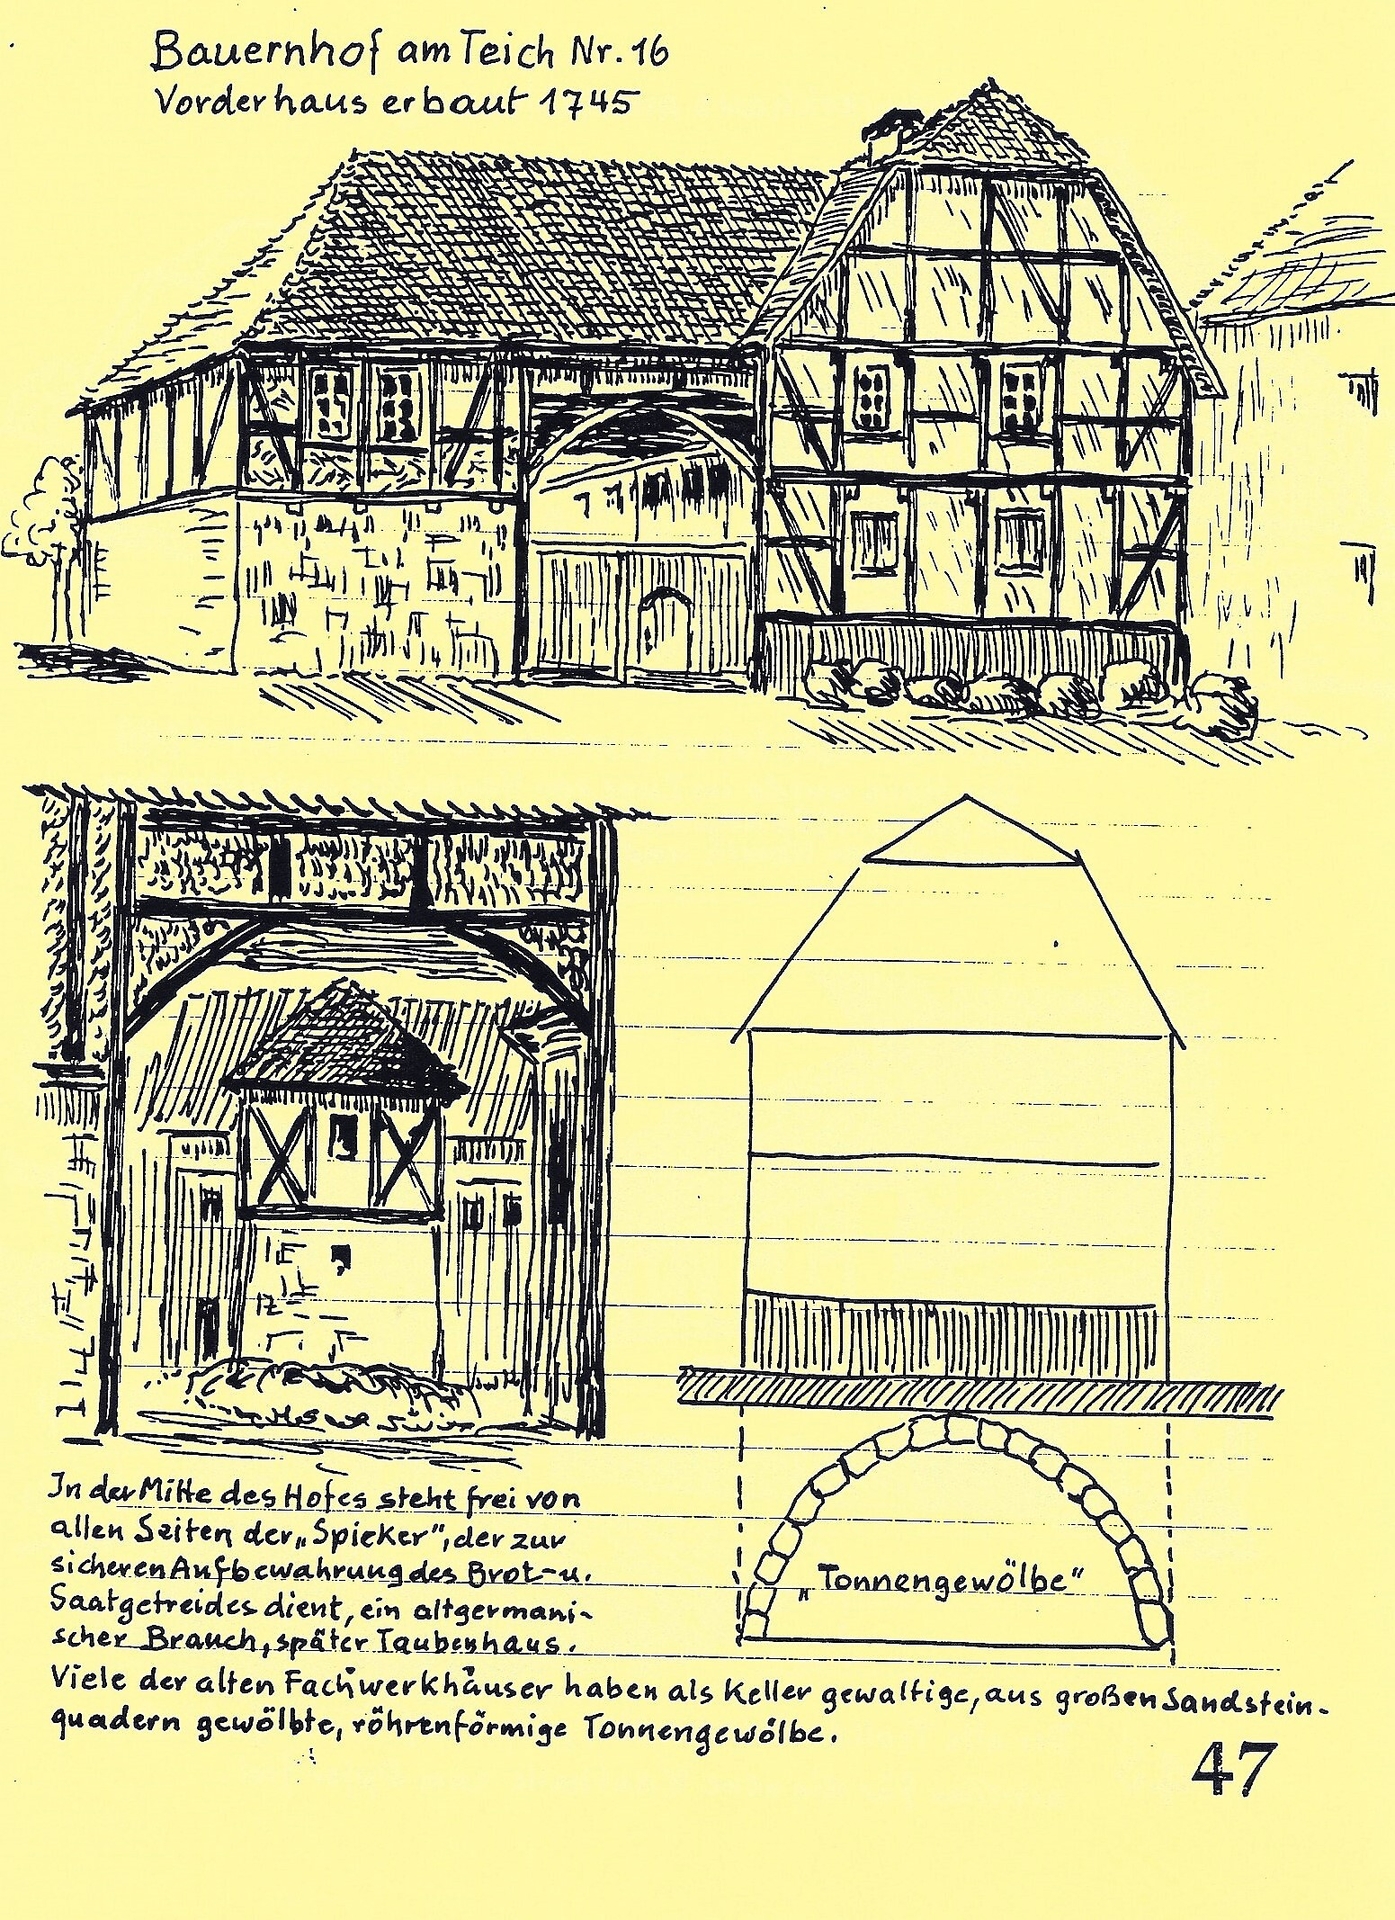 Bauernhof am Teich Nr. 16
Vorderhaus erbaut 1745
In der Mitte des Hofes steht frei von
allen Seiten der „Spieker”, der zur
sicheren Aufbewahrung des Brot-u.
Saatgetreides dient, ein altgermani-
scher Brauch, später Taubenhaus.
„Tonnengewölbe”
Viele der alten Fachwerkhäuser haben als Keller gewaltige, aus großen Sandstein-
quadern gewölbte, röhrenförmige Tonnengewölbe.
47